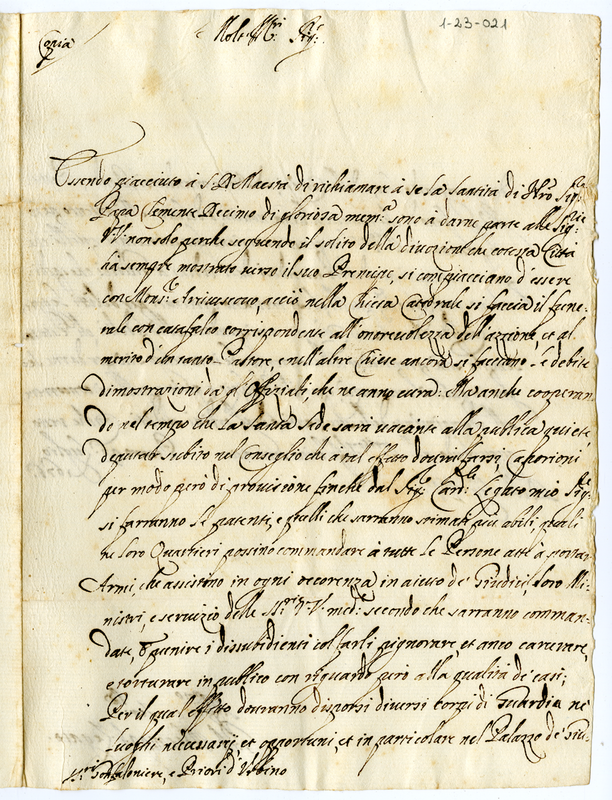 1-23-021
Copia
Molt' Ill.ri Sig.ri
Essendo piacciuto à S. D. Maestà di richiamare à se la Santità di Nro Sig.re
Papa Clemente Decimo di gloriosa mem.a sono à darne parte alle Sig.rie
VV non solo perche seguendo il solito della divozione che cotesta Città
hà sempre mostrato verso il suo Prencipe, si compiacciano d'essere
con Mons.re Arcivescovo, acciò nella Chiesa Catedrale si faccia il fune-
rale con catafalco corrispondente all'onorevolezza dell'azzione, et al
merito d'un tanto Pastore, e nell'altre Chiese ancora si facciano le debite
dimostrazioni da gl'Offiziali, che ne anno cura: Ma anche cooperan-
do nel tempo che la Santa Sede sarà vacante alla publica quiete,
deputar subito nel Conseglio che à tal effetto dovrà farsi, Caporioni
per modo però di provisione finche dal Sig.r Card.le Legato mio Sig.re
si faranno le patenti, e quelli che saranno stimati più abili, quali
ne loro Quartieri possino commandare à tutte le Persone atte à portar
Armi, che assistino in ogni occorenza in aiuto de' Giudici, loro Mi-
nistri, e servizio delle SS.rie VV. med.e secondo che sarranno comman-
date, e punire i dissubidienti col farli pignorare, et anco carcerare,
e torturare in publico con riguardo però alla qualità de casi;
Per il qual effetto dovranno disporsi diversi corpi di Guardia ne'
luoghi necessarij et opportuni, et in particolare nel Palazzo de' Giu-
SS.ri Gonfaloniere, e Priori d'Urbino